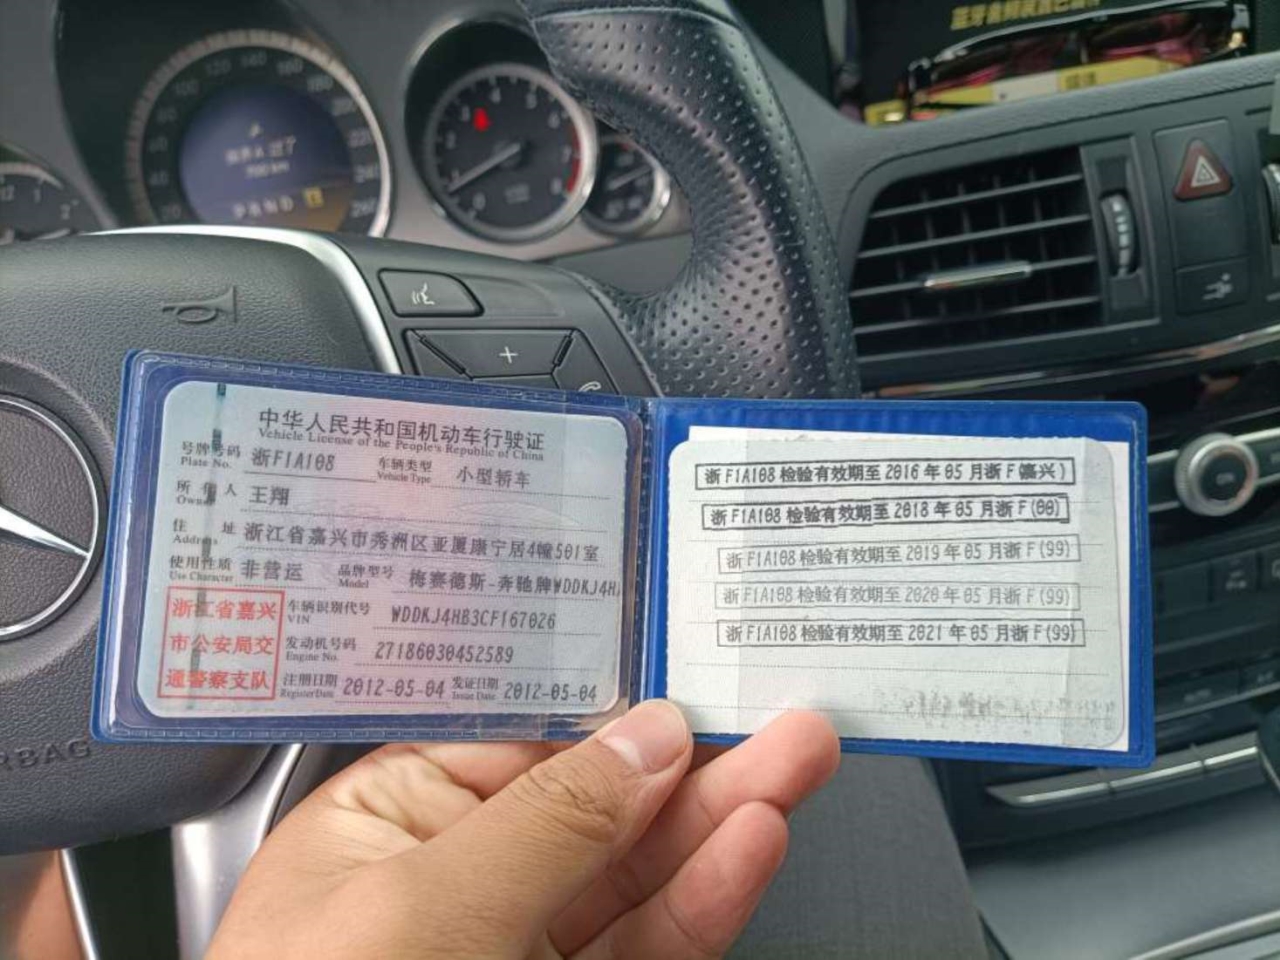 中华人民共和国机动车行驶证
Vehicle License of the People's Republic of China
号牌号码 浙F1A108 车辆类型 小型轿车
Plate No. Vehicle Type
所有人 王翔
Owner
住址 浙江省嘉兴市秀洲区亚厦康宁居4幢501室
Address
使用性质 非营运 品牌型号 梅赛德斯-奔驰牌WDDKJ4H
Use Character Model
浙江省嘉兴
市公安局交
通警察支队
车辆识别代号 WDDKJ4HB3CF167026
VIN
发动机号码 27186030452589
Engine No.
注册日期 2012-05-04 发证日期 2012-05-04
Register Date Issue Date
浙F1A108检验有效期至2016年05月浙F(嘉兴)
浙F1A108检验有效期至2018年05月浙F(00)
浙F1A108检验有效期至2019年05月浙F(99)
浙F1A108检验有效期至2020年05月浙F(99)
浙F1A108检验有效期至2021年05月浙F(99)
P R N D
RBAG